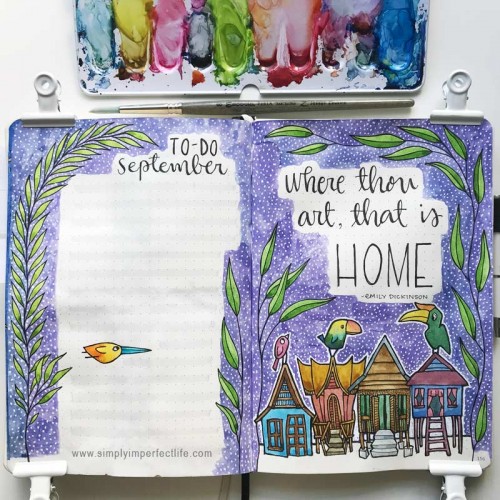 TO-DO
September
where thou
art, that is
HOME
-EMILY DICKINSON
www.simplyimperfectlife.com